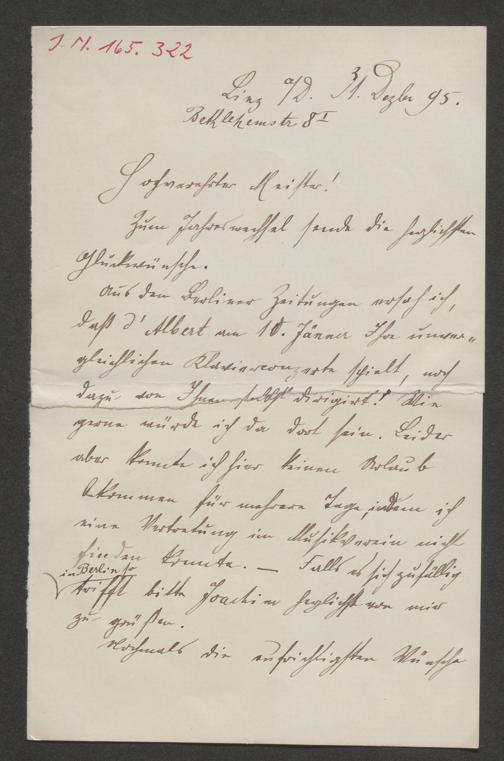 J. N. 165. 322
Linz a/D. 31. Dezbr 95.
Bethlehemstr 8 I
Hochverehrter Meister!
Zum Jahreswechsel sende die herzlichsten
Glückwünsche.
Aus den Berliner Zeitungen ersah ich,
daß d'Albert am 10. Jänner Ihre unver-
gleichlichen Klavierconzerte spielt, noch
dazu von Ihnen selbst dirigirt! Wie
gerne würde ich da dort sein. Leider
aber konnte ich hier keinen Urlaub
bekommen für mehrere Tage, indem ich
eine Vertretung im Musikverein nicht
finden konnte. — Falls es sich zufällig
in Berlin so
trifft bitte Joachim herzlichst von mir
zu grüßen.
Nochmals die aufrichtigsten Wünsche